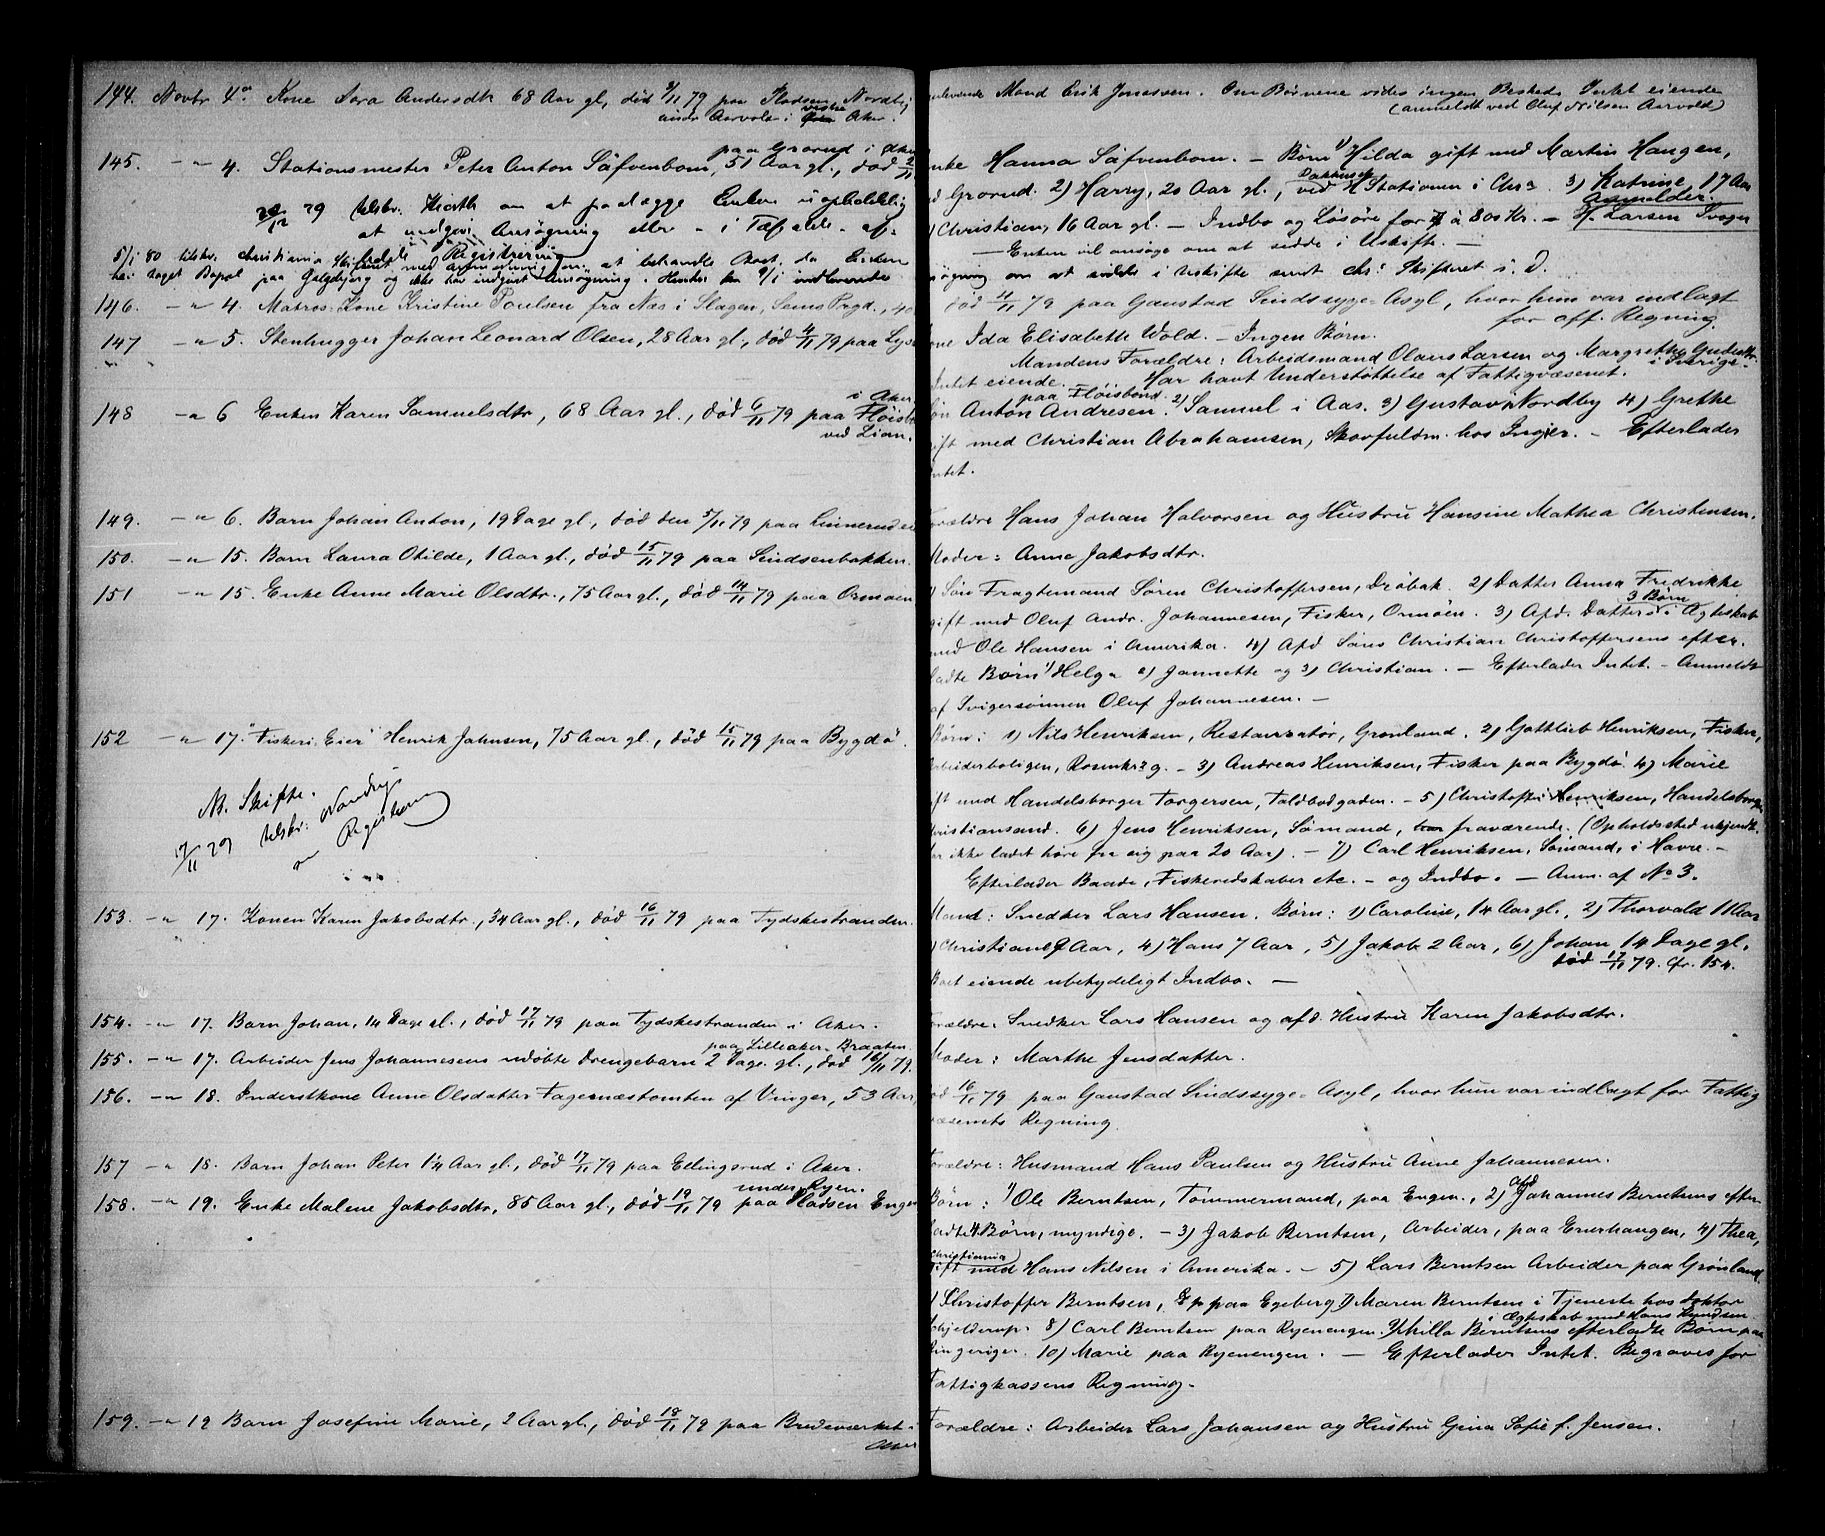 144. Novbr 4de Kone Sara Andersdtr 68 Aar gl, død 2/11 79 paa Pladsen Nordby
under Aarvold i vestre Aker.
efterlevende Mand Erik Jonassen. Om Børnene vides ingen Besked. Intet eiende
(anmeldt ved Oluf Nilsen Aarvold)
145. -"- 4. Stationsmester Peter Anton Säfvenbom, 51 Aar gl., død 2/11
paa Grorud i Aker
Enke Hanna Säfvenbom. - Børn 1) Hilda gift med Martin Haugen,
ved Grorud. 2) Harry, 20 Aar gl., ved H Stationen i Chra. 3) Katrine, 17 Aar
Anmelder:
Christian, 16 Aar gl. - Indbo og Løsøre for à 800 Kr. - H. Larsen Svoger
- Enken vil ansøge om at sidde i Uskifte. -
79 tilskr. Kiorth om at paalægge Enken uopholdelig
at indgive Ansøgning eller - i Tilfælde - af-
holde Registrering
5/1 80 tilskr. Christiania Skifteret med Anmodning om at behandle Boet, da Enken
har taget Bopæl paa Galgebjerg og ikke har indgivet Ansøgning. 9/1 indleverede
Ansøgning om at sidde i Uskifte sendt Chra Skifteret s. D.
146. -"- 4. Matros-Kone Kristine Poulsen fra Næs i Slagen, Sems Prgd., 40
død 4/11 79 paa Gaustad Sindssyge-Asyl, hvor hun var indlagt
for off. Regning.
147 -"- 5. Stenhugger Johan Leonard Olsen, 28 Aar gl., død 4/11 79 paa
Kone Ida Elisabeth Wold. - Ingen Børn.
Mandens Forældre: Arbeidsmand Olaus Larsen og Margrethe
i Sverige.
Intet eiende. Har havt Understøttelse af Fattigvæsenet.
148 -"- 6 Enken Karen Samuelsdtr, 68 Aar gl., død 6/11 79 paa
i Aker
ved Lian.
paa Fløisbond.
Søn Anton Andresen. 2) Samuel i Aas. 3) Gustav i Nordby 4) Grethe
gift med Christian Abrahamsen, Skovfuldm. hos Ingier. - Efterlader
Intet.
149. -"- 6. Barn Johan Anton, 19 Dage gl., død den 5/11 79 paa Linnerud
Forældre Hans Johan Halvorsen og Hustru Hansine Mathea Christensen.
150. -"- 15. Barn Laura Otilde, 1 Aar gl., død 15/11 79 paa Sindsenbakken.
Moder: Anne Jakobsdtr.
151 -"- 15. Enke Anne Marie Olsdtr., 75 Aar gl., død 14/11 79 paa Ormøen
1) Søn Fragtemand Søren Christoffersen, Drøbak. 2) Datter Anna Fredrikke
gift med Oluf Andr. Johannesen, Fisker, Ormøen. 3) Afd. Datters 3 Børn i Ægteskab
med Ole Hansen i Amerika. 4) Afd Søns Christian Christoffersens efter-
ladte Børn 1) Helga 2) Jannette og 3) Christian. - Efterlader Intet. - Anmeldt
af Svigersønnen Oluf Johannesen. -
152 -"- 17. "Fiskeri-Eier" Henrik Jahnsen, 75 Aar gl., død 15/11 79 paa Bygdø.
Børn: 1) Nils Henriksen, Restauratør, Grønland. 2) Gottlieb Henriksen, Fisker,
Arbeiderboligen, Rosenkrzg. - 3) Andreas Henriksen, Fisker paa Bygdø. 4) Marie
gift med Handelsborger Torgersen, Toldbodgaden. - 5) Christoffer Henriksen, Handelsborger
Christiansand. 6) Jens Henriksen, Sømand, fraværende. (Opholdssted ukjendt.
har ikke ladet høre fra sig paa 20 Aar). - 7) Carl Henriksen, Sømand, i Havre. -
Efterlader Baade, Fiskeredskaber etc. - og Indbo. - Anm. af No 3.
NB. Skifte.
17/11 79 tilskr: Nandrup
om Registrering
153. -"- 17. Konen Karen Jakobsdtr., 34 Aar gl., død 16/11 79 paa Tydskestranden.
Mand: Snedker Lars Hansen. Børn: 1) Caroline, 14 Aar gl., 2) Thorvald 11 Aar
3) Christiane 9 Aar, 4) Hans 7 Aar, 5) Jakob 2 Aar, 6) Johan 14 Dage gl.
død 17/11 79. cfr. 154.
Boet eiende ubetydeligt Indbo. -
154. -"- 17. Barn Johan, 14 Dage gl., død 17/11 79 paa Tydskestranden i Aker.
Forældre: Snedker Lars Hansen og afd. Hustru Karen Jakobsdtr.
155. -"- 17. Arbeider Jens Johannesens udøbte Drengebarn 2 Dage gl., død 16/11 79.
paa Lilleaker-Braaten
Moder: Marthe Jensdatter.
156. -"- 18. Inderstkone Anne Olsdatter Fagernæstomten af Vinger, 53 Aar,
død 16/11 79 paa Gaustad Sindssyge-Asyl, hvor hun var indlagt for Fattig-
væsenets Regning.
157 -"- 18. Barn Johan Peter 1¼ Aar gl., død 17/11 79 paa Ellingsrud i Aker.
Forældre: Husmand Hans Paulsen og Hustru Anne Johannesen.
158. -"- 19. Enke Malene Jakobsdtr, 85 Aar gl., død 19/11 79 paa Pladsen Engen
under Ryen.
Børn: 1) Ole Berntsen, Tømmermand, paa Engen., 2) Afd Johannes Berntsens efter-
ladte 4 Børn, myndige. - 3) Jakob Berntsen, Arbeider, paa Enerhaugen, 4) Thea,
Christiania
gift med Hans Nilsen i Amerika. - 5) Lars Berntsen Arbeider paa Grønland.
6) Christoffer Berntsen, paa Egeberg 7) Maren Berntsen i Tjeneste hos Doktor
Schjelderup. 8) Carl Berntsen paa Ryenengen. 9) Milla Berntsens efterladte Børn paa
i Ægteskab med Hans Knudsen
Ringerige. 10) Marie paa Ryenengen. - Efterlader Intet. Begraves for
Fattigkassens Regning.
159. -"- 19 Barn Josefine Marie, 2 Aar gl., død 18/11 79 paa Bredeværket i
Aker
Forældre: Arbeider Lars Johansen og Hustru Gina Sofie f. Jensen.